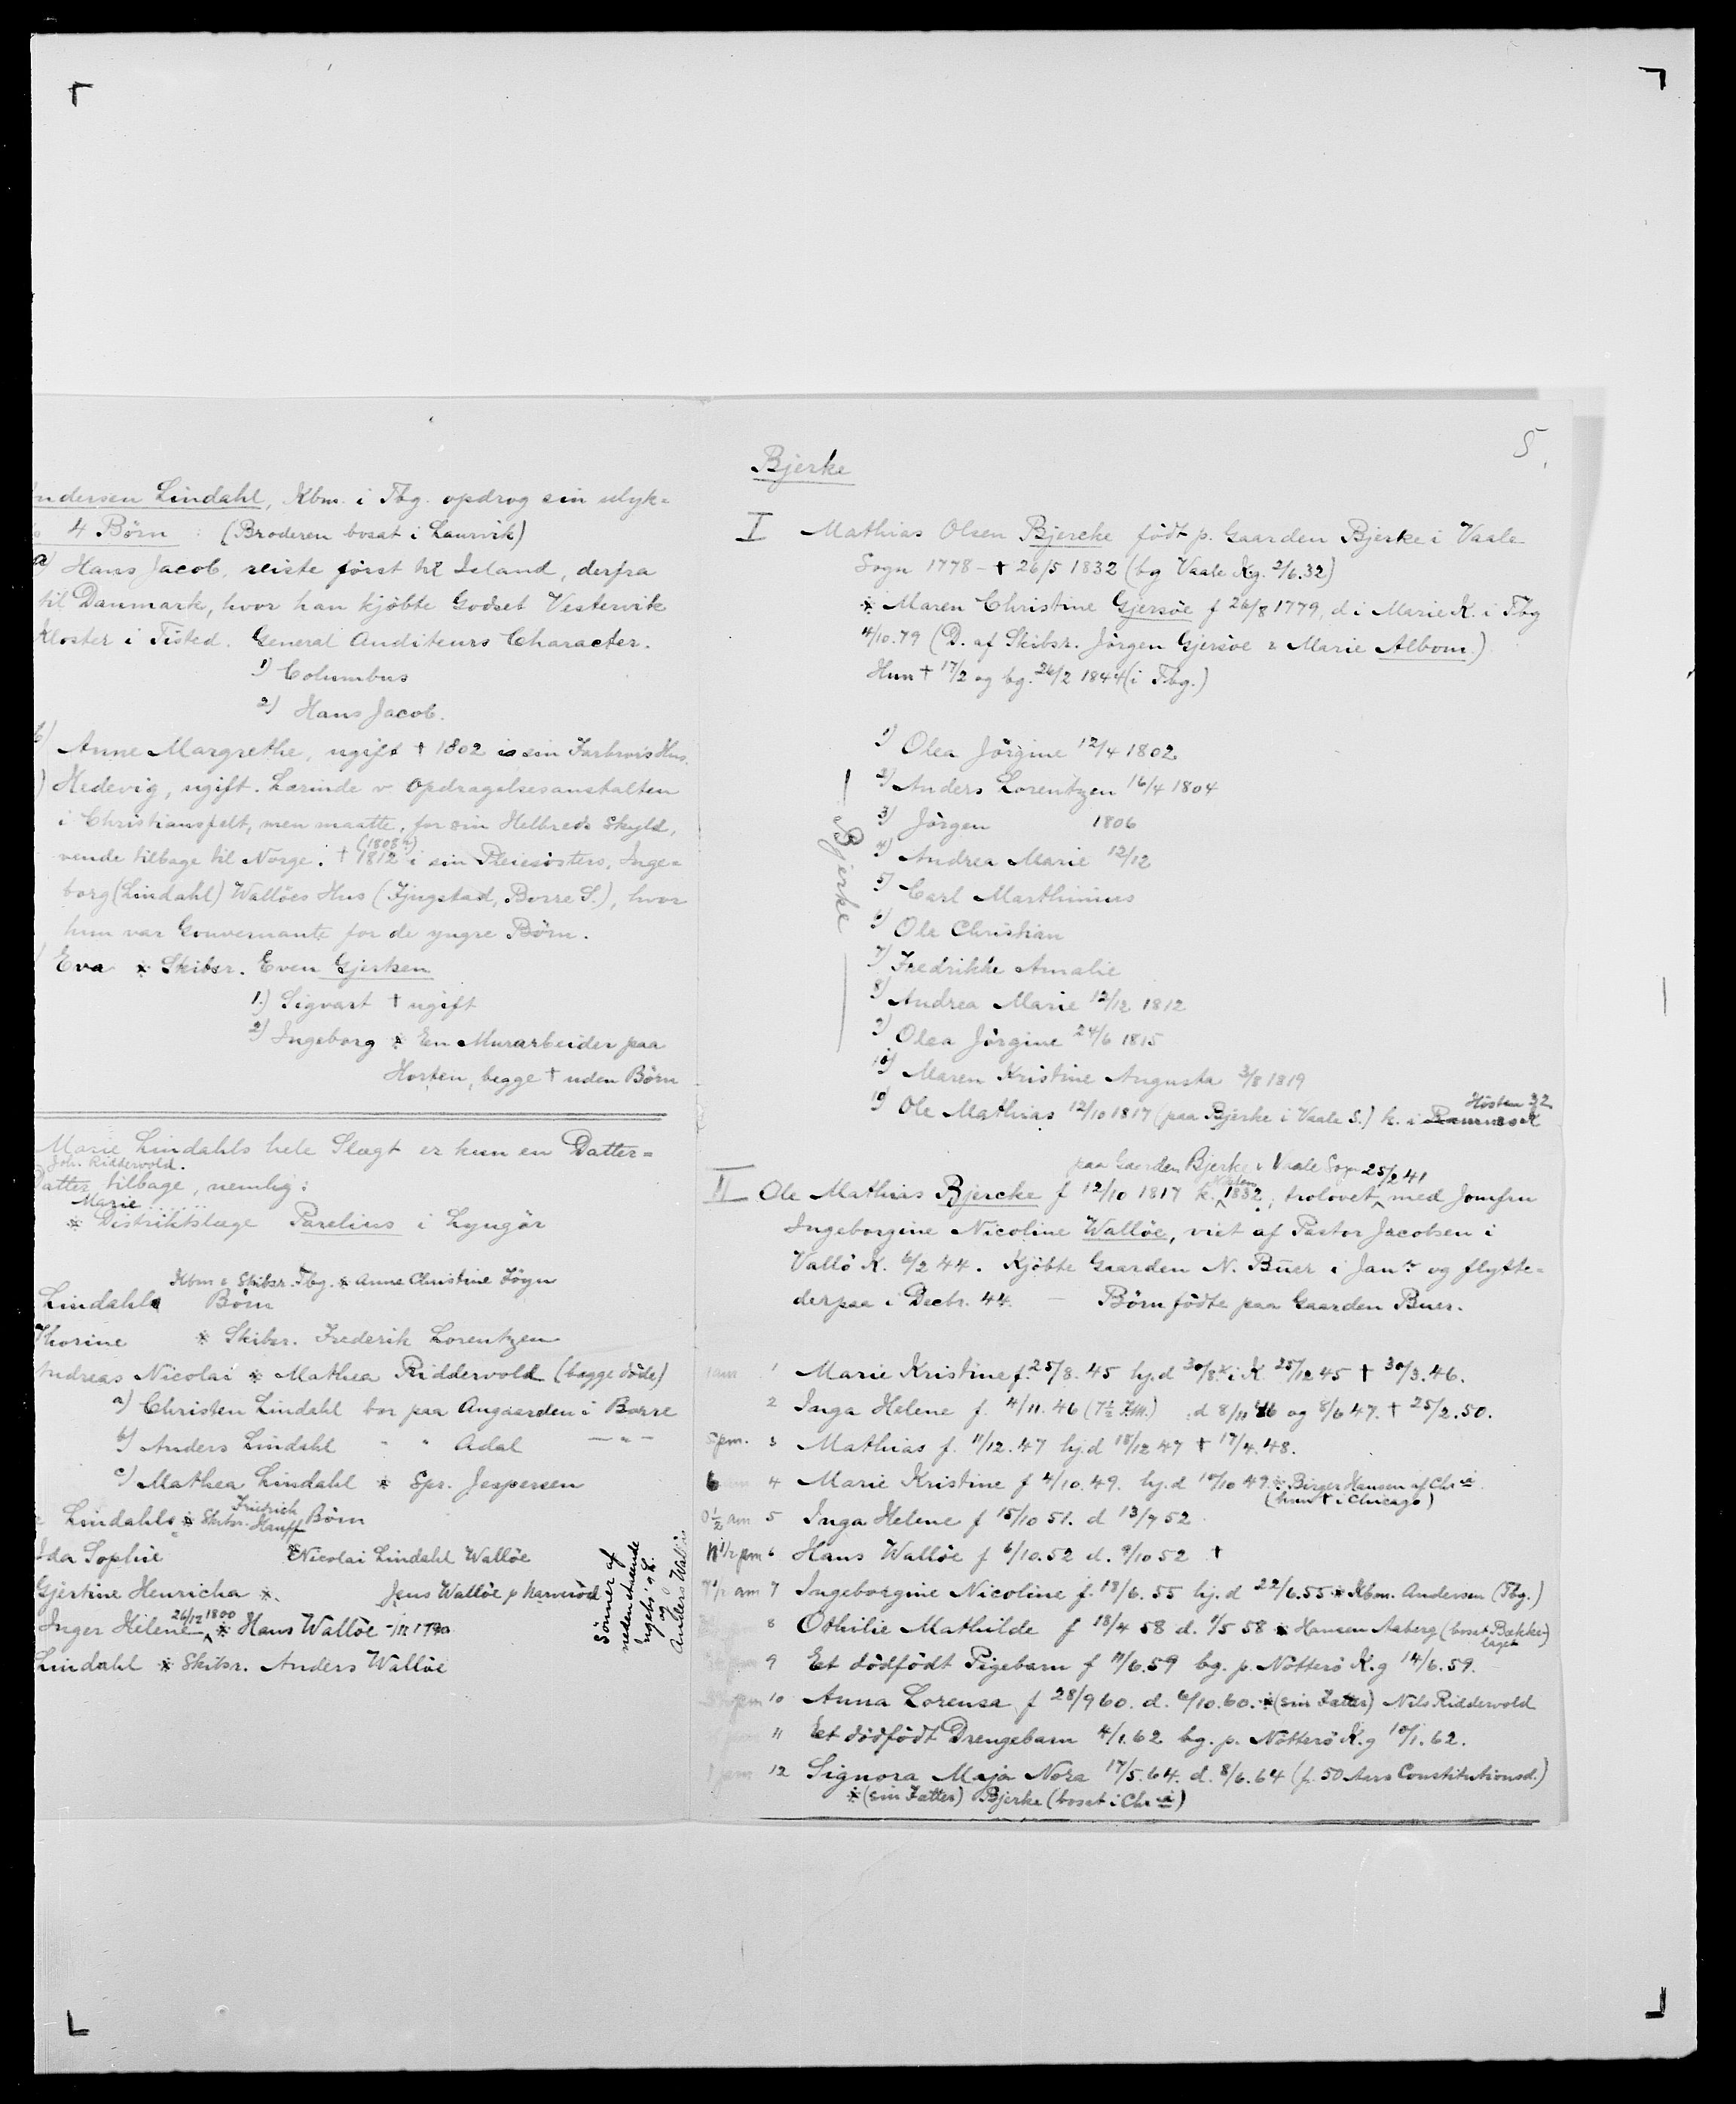 ndersen Lindahl, Kbm. i Tbg. opdrog sin ulyk=
4 Børn : (Broderen bosat i Laurvik)
a) Hans Jacob, reiste først til Island, derfra
til Danmark, hvor han kjøbte Godset Vestervik
Kloster i Tisted. General Auditeurs Character.
1) Columbus
2) Hans Jacob.
b) Anne Margrethe, ugift † 1802 i sin Farbrors Hus.
) Hedevig, ugift. Lærinde v Opdragelsesanstalten
i Christiansfelt, men maatte, for sin Helbreds Skyld,
(1808?)
vende tilbage til Norge. † 1812 i sin Pleiesisters, Inge=
borg (Lindahl) Wallöes Hus (Fjugstad, Borre S.), hvor
hun var Gouvernante for de yngre Børn.
Eva * Skibsr. Even Gjertsen
1.) Sigvart † ugift
2) Ingeborg * En Murarbeider paa
Horten, begge † uden Børn
Marie Lindahls hele Slægt er kun en Datter=
Joh. Riddervold.
Datter tilbage, nemlig:
Marie
* Distriktslæge Parelius i Lyngör
Kbm & Skibsr. Tbg. * Anne Christine Föyn
Lindahls Børn
Thorine * Skibsr. Frederik Lorentzen
Andreas Nicolai * Mathea Riddervold (begge døde)
a) Christen Lindahl bor paa Augaarden i Borre
b) Anders Lindahl " " Adal — " —
c) Mathea Lindahl * Spr. Jespersen
Lindahls * Skibsr. Friedrich Hauff Børn
Ida Sophie * Nicolai Lindahl Wallöe
Gjertine Henricha * Jens Wallöe p Narverød
Inger Helene 26/12 1800 * Hans Wallöe
Lindahl * Skibsr. Anders Wallöe
Sønner af
nedenstaaende
og
Anders Wall
5.
Bjerke
I Mathias Olsen Bjercke født p. Gaarden Bjerke i Vaale
Sogn 1778 - † 26/5 1832 (bg Vaale Kg. 2/6.32)
* Maren Christine Gjersöe f 26/8 1779, d i Marie K. i Tbg
4/10.79 (D. af Skibsr. Jörgen Gjersöe & Marie Albom.)
Hun † 17/2 og bg. 26/2 1844 (i Tbg.)
Bjerke
1) Olea Jörgine 12/4 1802
2) Anders Lorentzen 16/4 1804
3) Jörgen 1806
4) Andrea Marie 12/12
5) Carl Marthinius
6) Ole Christian
7) Fredrikke Amalie
8) Andrea Marie 12/12 1812
9) Olea Jörgine 24/6 1815
10) Maren Kristine Augusta 3/8 1819
Høsten 32
Ole Mathias 12/10 1817 (paa Bjerke i Vaale S.) k. i
paa Gaarden Bjerke i Vaale Sogn 25/2 41
II Ole Mathias Bjercke f 12/10 1817 k. 1832, trolovet med Jomfru
Ingeborgine Nicoline Wallöe, viet af Pastor Jacobsen i
Vallö K. 6/2 44. Kjöbte Gaarden N. Buer i Jan. og flytte=
derpaa i Decbr. 44. — Börn födte paa Gaarden Buer.
1 Marie Kristine f. 25/8. 45 hj.d 30/8. i K 25/12 45 † 30/3.46.
2 Inga Helene f. 4/11. 46 (7½ Fm.) d 8/11 46 og 8/6 47. † 25/2.50.
5 pm. 3 Mathias f. 11/12. 47 hj.d 18/12 47 † 17/4. 48.
6 4 Marie Kristine f 4/10. 49. hj.d 10/10 49. * Birger Hansen af Chr.a
(hun † i Chicago)
0½ am 5 Inga Helene f 15/10 51. d 13/7 52
11½ pm 6 Hans Wallöe f 6/10. 52 d. 9/10 52 †
7½ am 7 Ingeborgine Nicoline f. 18/6. 55 hj.d 22/6.55 * Kbm. Andersen (Tbg.)
8 Othilie Mathilde f 18/4 58 d. 1/5 58 * Hansen Aaberg (bosat Bække=
laget)
9 Et dödfödt Pigebarn f 11/6.59 bg. p. Nötterö K.g 14/6. 59.
pm 10 Anna Lorensa f 28/9 60. d. 6/10.60. * (sin Fætter) Nils Riddervold
11 Et dödfödt Drengebarn 4/1.62 bg. p. Nötterö K.g 10/1. 62.
12 Signora Maja Nora 17/5.64. d. 8/6.64 (f. 50 Aars Constitutionsd.)
* (sin Fætter) Bjerke (bosat i Chr.a)